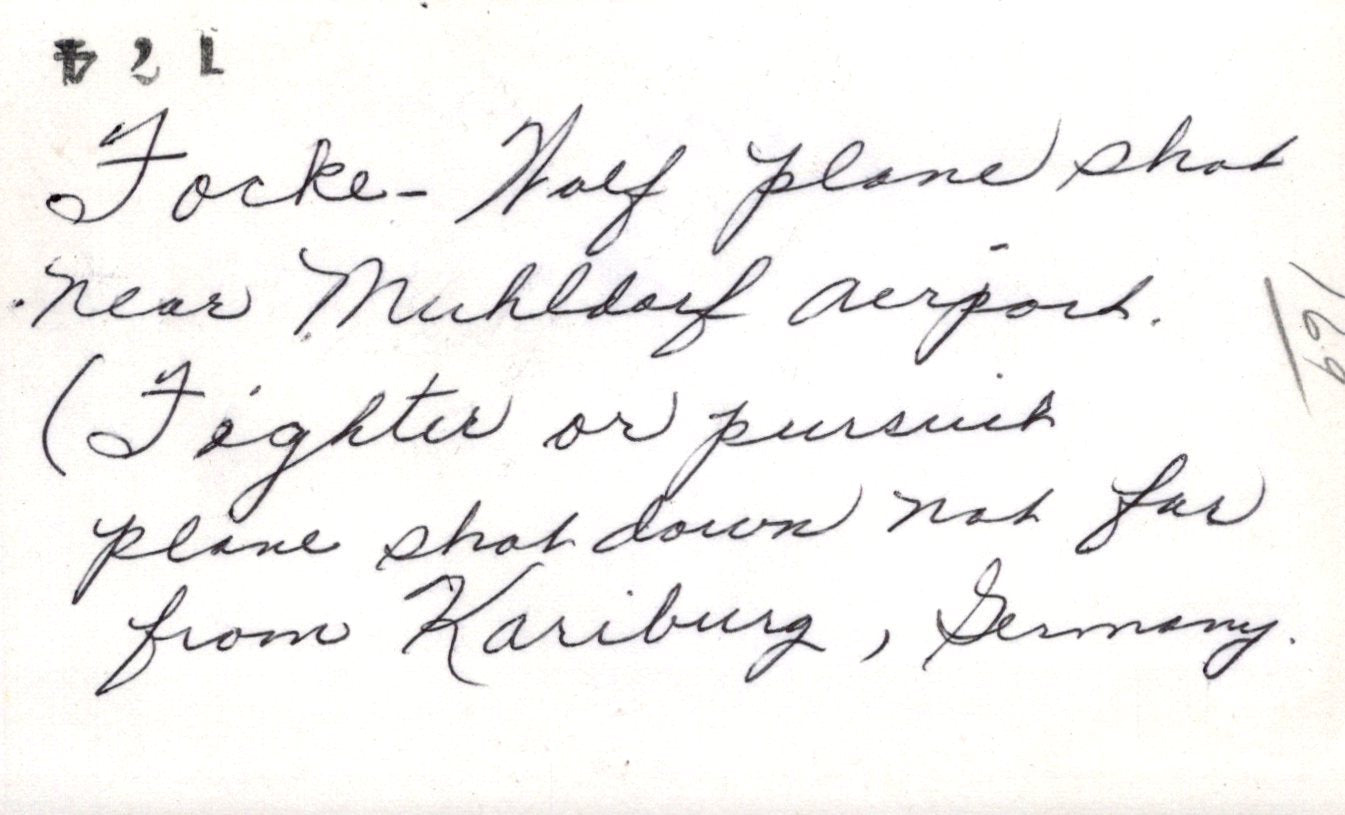 421
Focke-Wolf plane shot
near Muhldorf airport.
(Fighter or pursuit
plane shot down not far
from Kariburg, Germany.
169